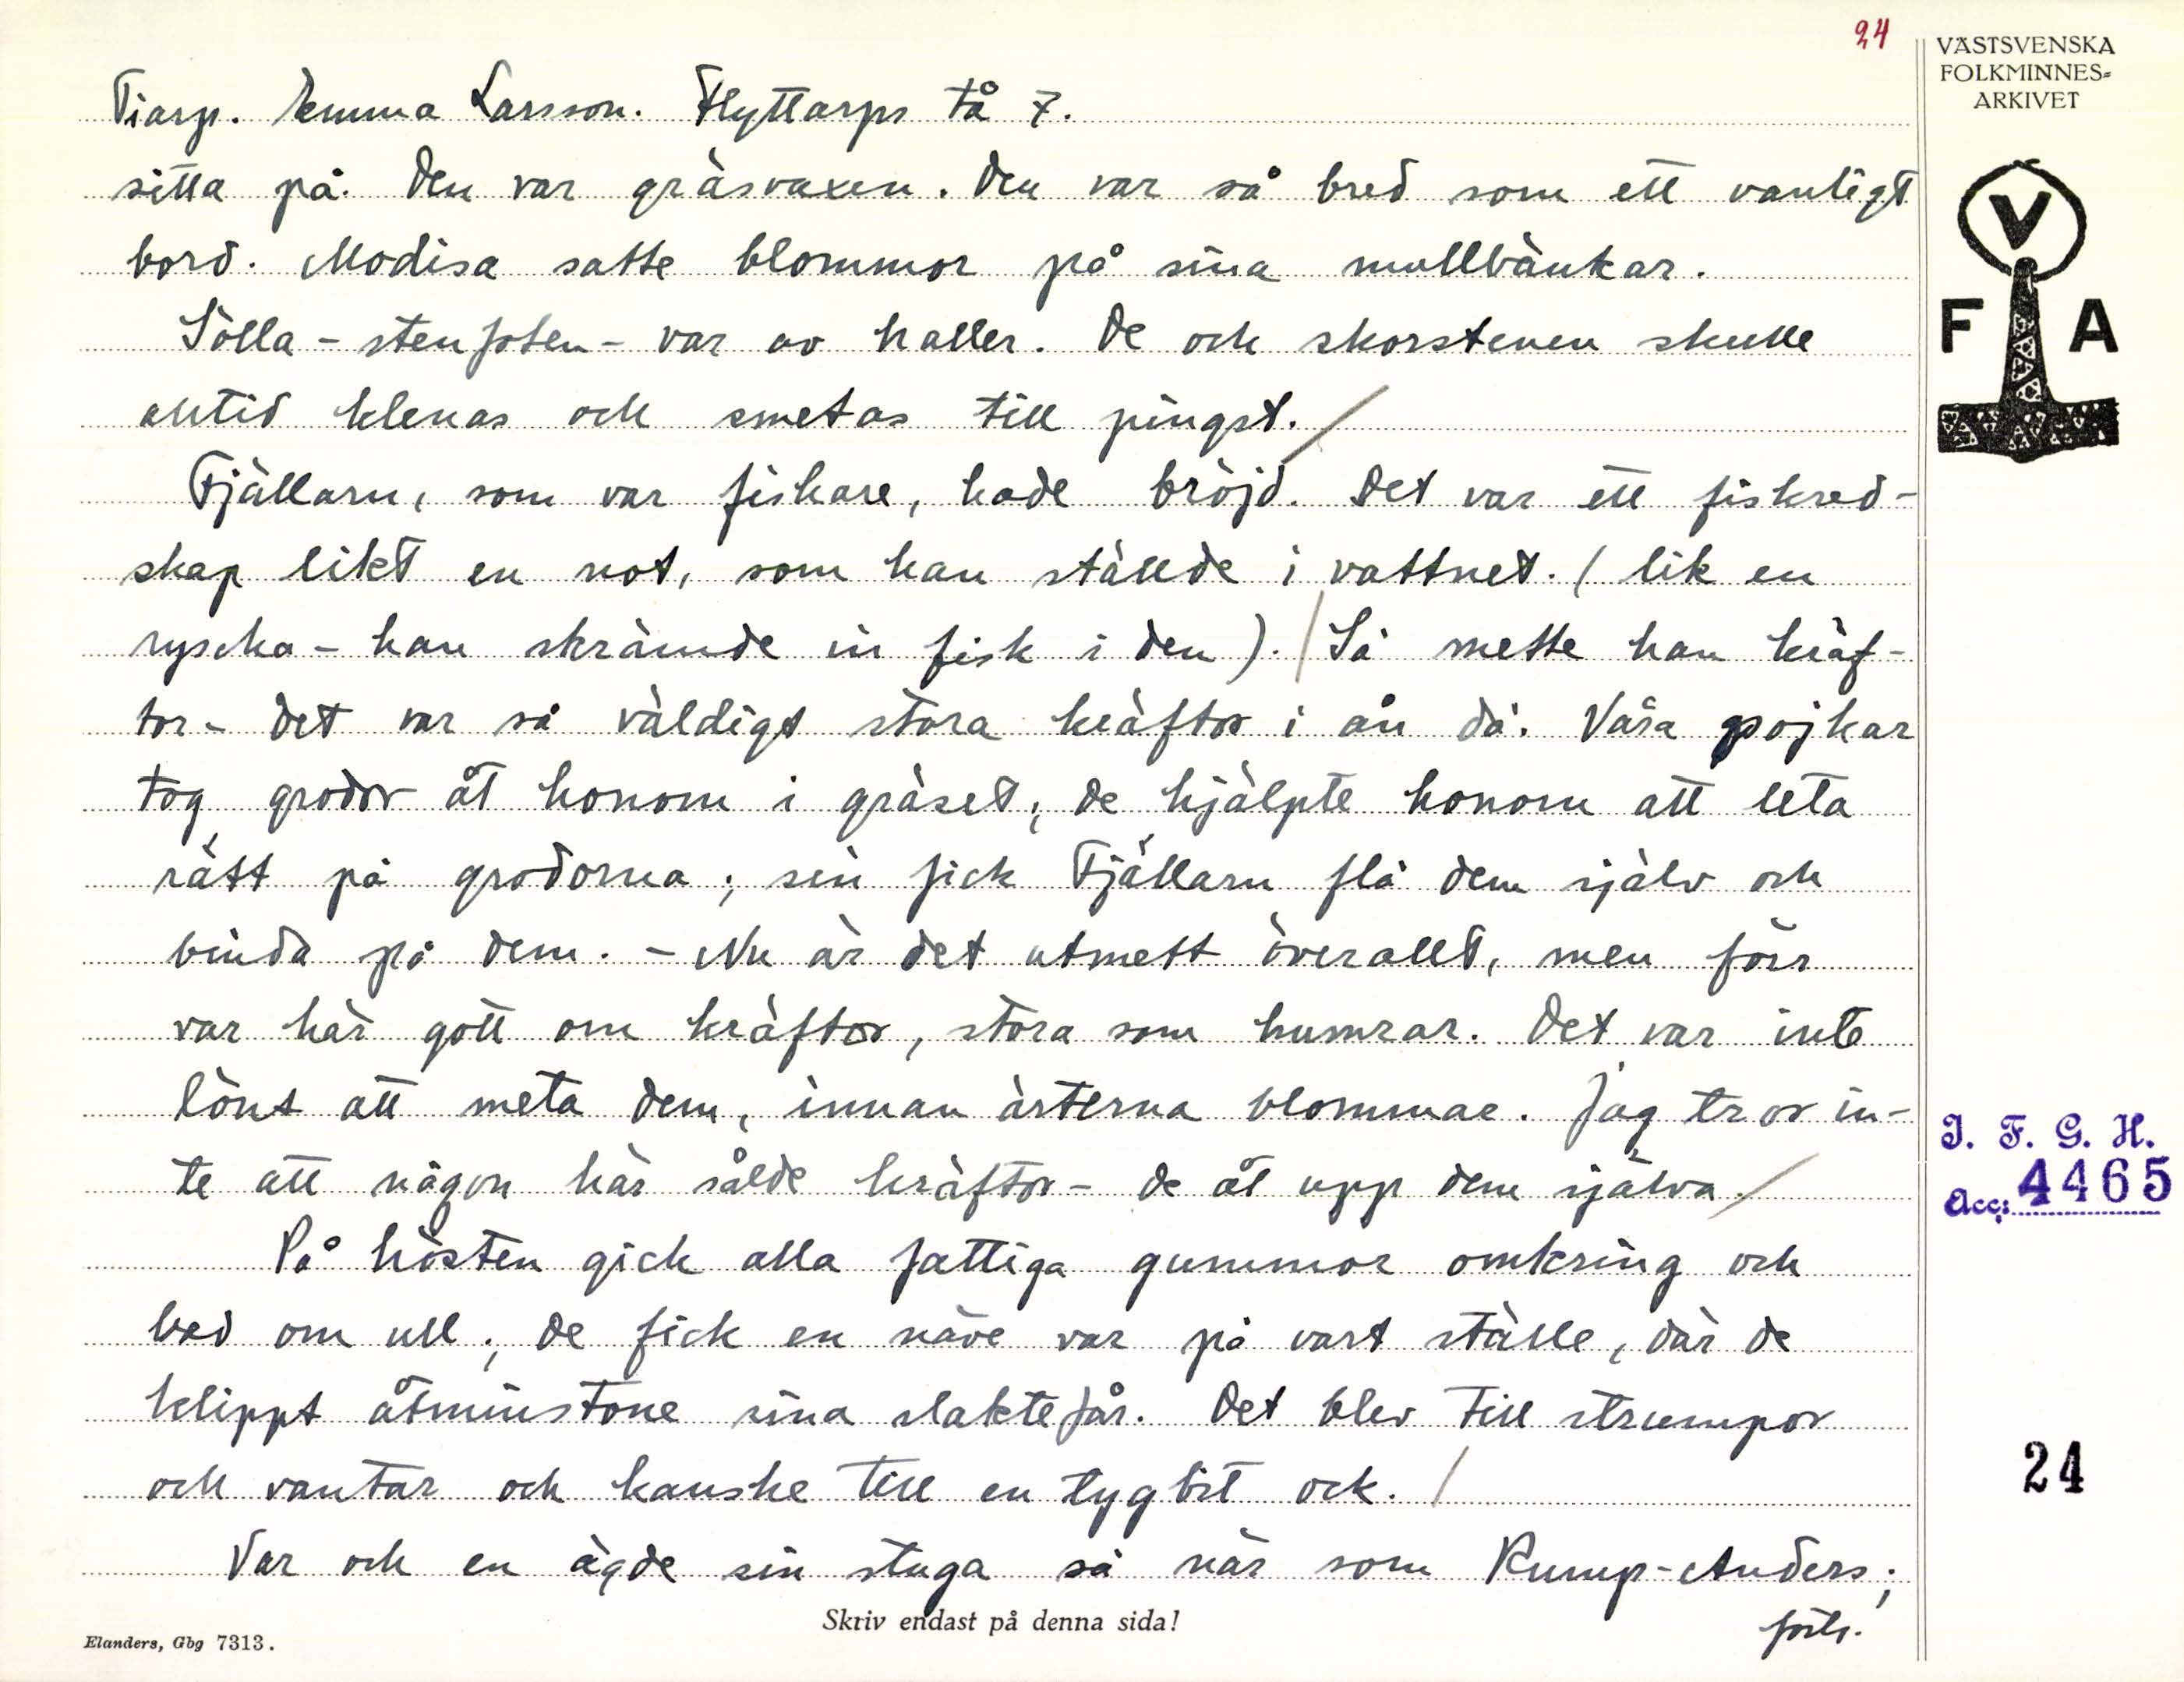 24
VÄSTSVENSKA
FOLKMINNES=
ARKIVET
V
F A
Tiarp. Emma Larsson. Flyttarps tå 7.
sitta på. Den var gräsvaxen. Den var så bred som ett vanligt
bord. Modisa satte blommor på sina mullbänkar.
Sölla - stenfoten - var av haller. De och skorstenen skulle
alltid klenas och smetas till pingst. /
Fjällarn, som var fiskare, hade bröjd. Det var ett fiskred-
skap likt en not, som han ställde i vattnet. ( lik en
ryscha - han skrämde in fisk i den ). / Så mette han kräf-
tor - det var så väldigt stora kräftor i ån då. Våra pojkar
tog grodor åt honom i gräset, de hjälpte honom att leta
rätt på grodorna; sin fick Fjällarn flå dem själv och
binda på dem. - Nu är det utmett överallt, men förr
var här gott om kräftor, stora som humrar. Det var inte
lönt att meta dem, innan ärterna blommae. Jag tror in-
te att någon här sålde kräftor - de åt upp dem själva. /
På hösten gick alla fattiga gummor omkring och
bad om ull; de fick en näve var på vart ställe, där de
klippt åtminstone sina slaktefår. Det blev till strumpor
och vantar och kanske till en tygbit ock. /
Var och en ägde sin stuga så när som Rump-Anders;
forts.
Skriv endast på denna sida!
Elanders, Gbg 7313.
I. F. G. H.
Acc: 4465
24